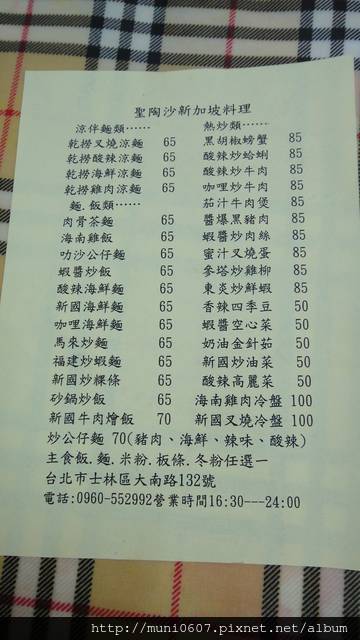 聖陶沙新加坡料理
涼伴麵類⋯⋯
乾撈叉燒涼麵 65
乾撈酸辣涼麵 65
乾撈海鮮涼麵 65
乾撈雞肉涼麵 65
麵.飯類⋯⋯
肉骨茶麵 65
海南雞飯 65
叻沙公仔麵 65
蝦醬炒飯 65
酸辣海鮮麵 65
新國海鮮麵 65
咖哩海鮮麵 65
馬來炒麵 65
福建炒蝦麵 65
新國炒粿條 65
砂鍋炒飯 65
新國牛肉燴飯 70
熱炒類⋯⋯
黑胡椒螃蟹 85
酸辣炒蛤蜊 85
酸辣炒牛肉 85
咖哩炒牛肉 85
茄汁牛肉煲 85
醬爆黑豬肉 85
蝦醬炒肉絲 85
蜜汁叉燒蛋 85
麥塔炒雞柳 85
東炎炒鮮蝦 85
香辣四季豆 50
蝦醬空心菜 50
奶油金針菇 50
新國炒油菜 50
酸辣高麗菜 50
海南雞肉冷盤 100
新國叉燒冷盤 100
炒公仔麵 70(豬肉、海鮮、辣味、酸辣)
主食飯.麵.米粉.板條.冬粉任選一
台北市士林區大南路132號
電話:0960-552992營業時間16:30---24:00
http://muni0607.pixnet.net/album